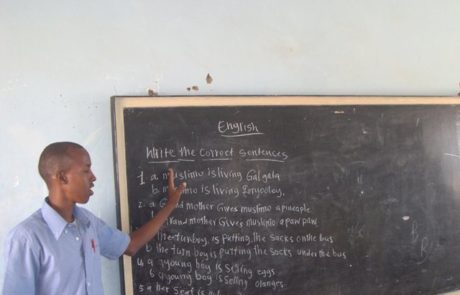 English
Write the correct sentences
1 a muslimo is living Galgala
b. muslimo is living
2. a Grand mother Gives muslimo a pineapple
b. Grand mother Gives muslimo a pawpaw
3 the turnboy is putting the socks on the bus
b the turn boy is putting the socks under the bus
4 a young boy is selling eggs
b young boy is selling oranges
5 a her seat is